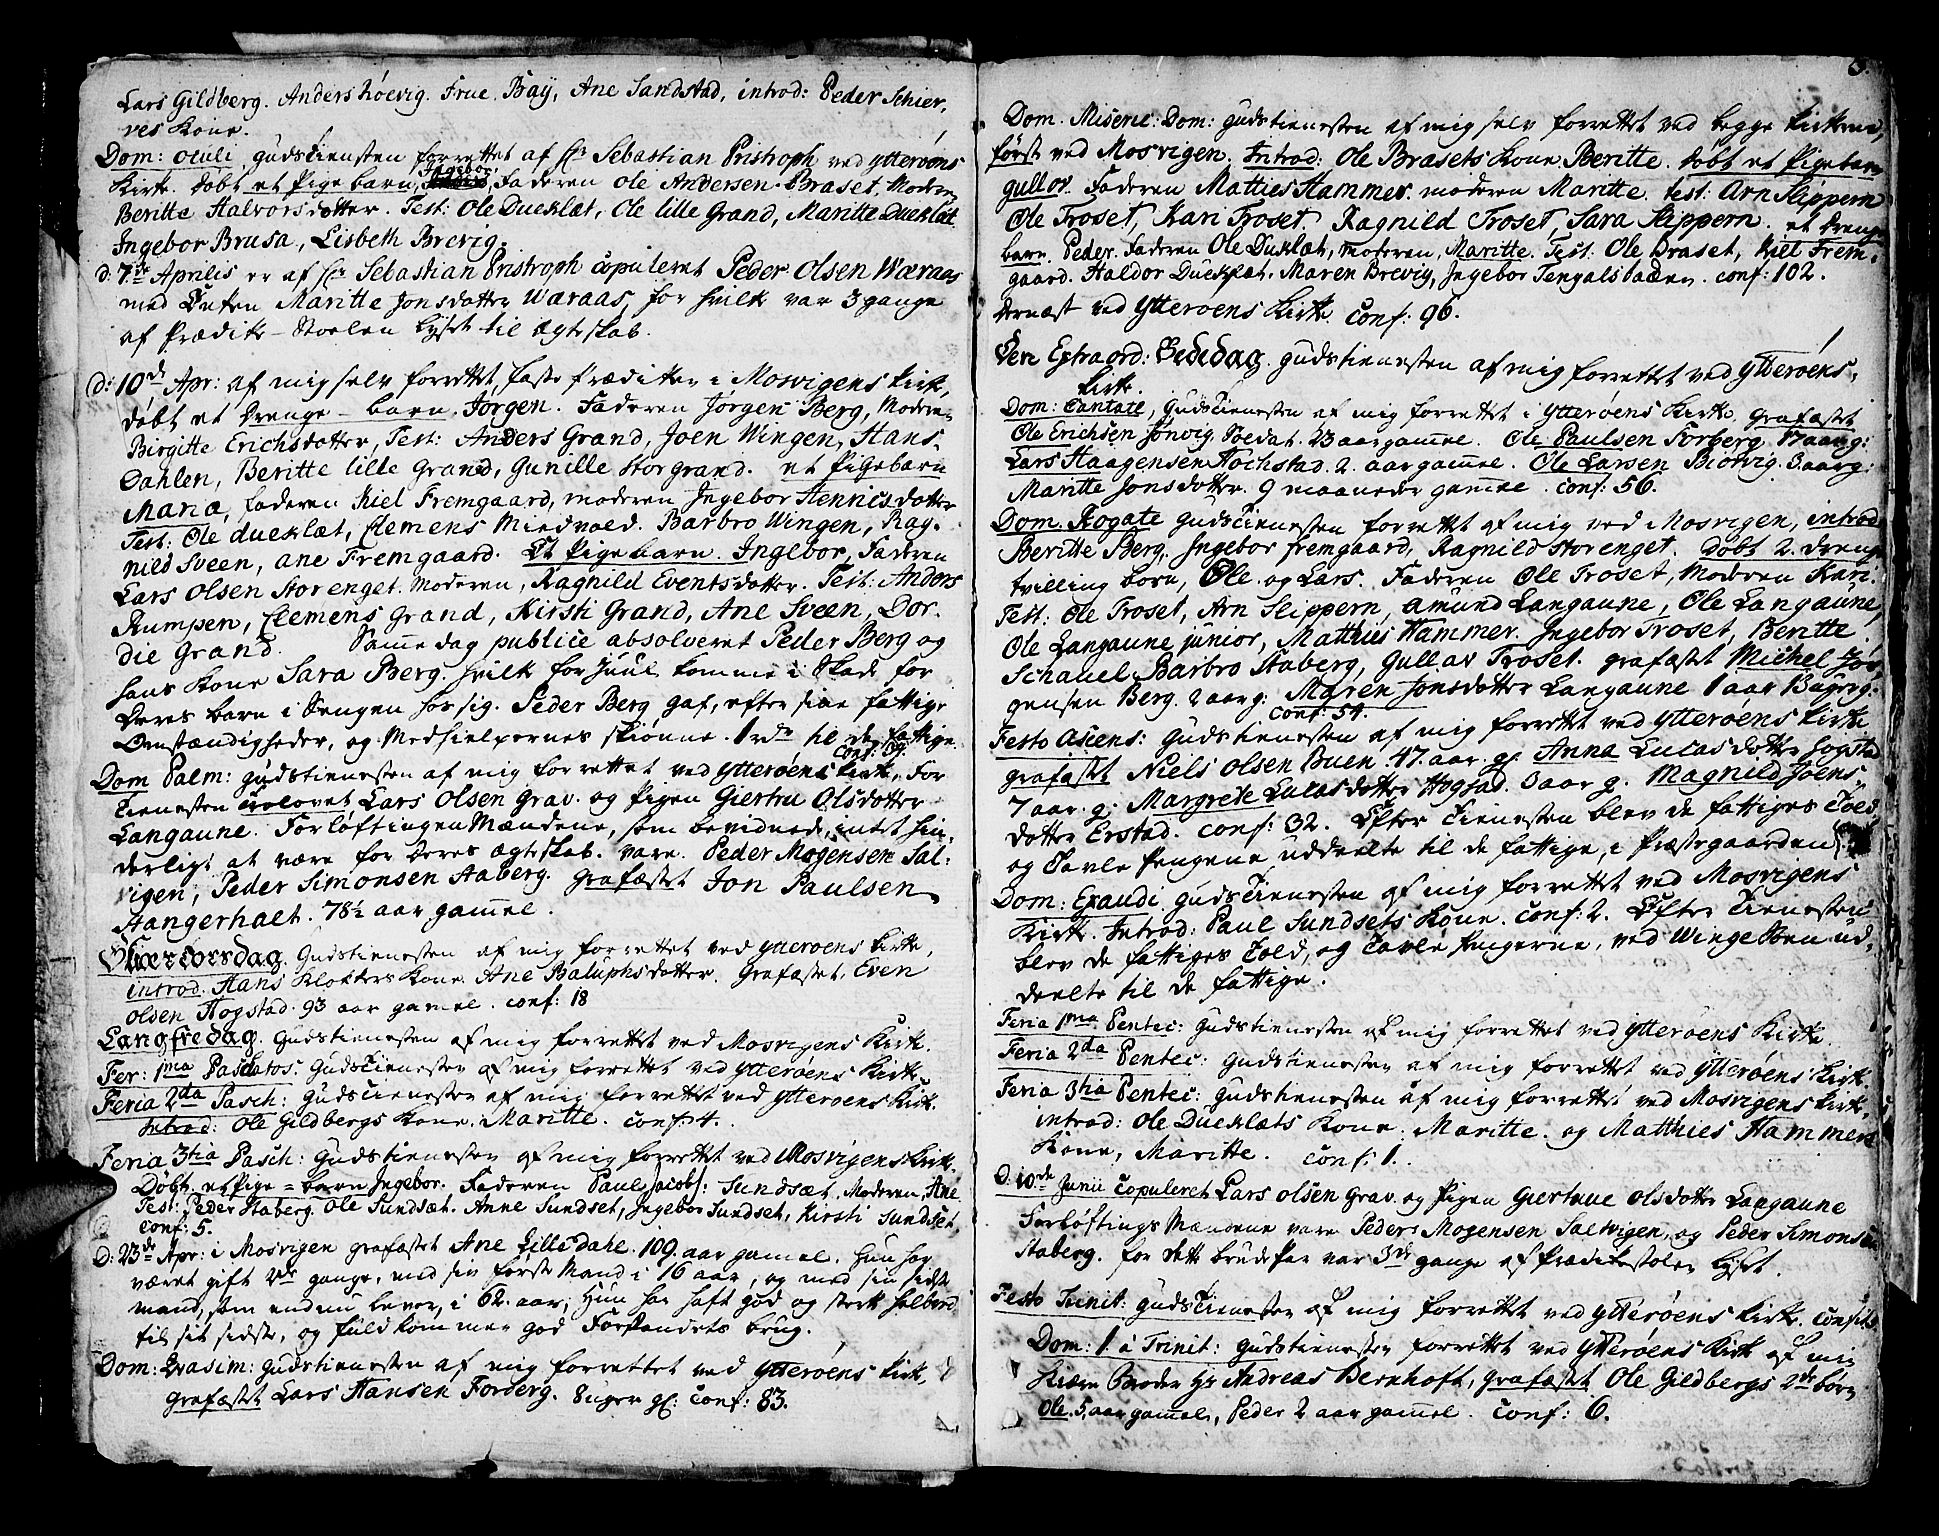 Lars Gildberg. Anders høevig. Frue Bay, Ane Sandstad, introd: Peder Schier,
ves Kone.
Dom: oculi gudstiensten forrettet af Hr Sebastian Pristroph ved ytterøens
Kirke. døbt et Pige barn, Ingebor, Faderen Ole Andersen Braset, Moderen
Beritte Halvorsdotter. Test: Ole Dueklæt, Ole lille Grand, Maritte Dueklæt
Ingebor Brusa, Lisbeth Brevig.
d: 7de Aprilis er af Hr Sebastian Pristroph copuleret Peder Olsen Waraas
med Enken Maritte Jonsdotter Waraas, for hvilke var 3 gange
af Prædike-Stoelen lyset til ægteskab.
d: 10de Apr: af mig selv forrettet, faste Prædiken i Mosvigens Kirke,
døbt et Drenge-barn. Jørgen. Faderen Jørgen Berg, Moderen
Birgitte Erichsdotter, Test: Anders Grand, Joen Wingen, Hans
Dahlen, Beritte lille Grand, Gunille Storgrand. et Pigebarn
Maria, faderen Kiel Fremgaard, moderen Ingebor Hennicsdotter
Test: Ole dueklæt, Clemens Miedvold. Barbro Wingen, Rag-
nild Sveen, ane Fremgaard. Et Pigebarn. Ingebor, Faderen
Lars Olsen Storenget. Moderen, Ragnild Eventsdotter. Test: Anders
Rumpen, Clemens Grand, Kirsti Grand, Ane Sveen, Dor-
die Grand. Samme dag publice absolveret Peder Berg og
hans Kone Sara Berg. hvilke for Juul komme i Skade for
Deres barn i Sengen hos sig. Peder Berg gaf, efter sine fattige
Omstændigheder, og Medhielpernes skiønne. 1 rdr til de fattige.
conf: 39.
Dom Palm: gudstienesten af mig forrettet ved Ytterøens Kirke, For
Tienesten trolovet Lars Olsen Grav. og Pigen Giertru Olsdotter
Langaune. Forløftingen Mændene, som bevidnede, intet hin-
derligt at være for deres ægteskab. vare. Peder Mogensen Sal-
vigen, Peder Simonsen Aaberg. grafæstet Jon Paulsen
Hangerhalt. 78½ aar gamel.
Skiertorsdag. Gudstienesten af mig forrettet ved ytterøens Kirke,
introd. Hans Klokkers Kone. Ane Baluphsdotter. Grafæstet. Even
olden Hogstad. 93 aar gamel. conf: 18
Langfredag. Gudstienesten af mig forrettet ved Mosvigens Kirke.
Fer: 1ma Paschatos. Gudstienesten af mig forrettet ved ytterøens Kirke.
Feria 2da Pasch: Gudstienesten af mig forrettet ved ytterøens Kirke.
Introd: Ole Gildbergs Kone. Maritte. conf: 4.
Feria 3tia Pasch: Gudstienesten af mig forrettet ved Mosvigens Kirke.
Døbt. et Pige=barn Ingebor. Faderen Paul Jacobs: Sundsæt. Moderen, Ane
Test: Peder Staberg. Ole Sundsæt. Anne Sundset, Ingebor Sundset, Kirsti Sundset,
conf: 5.
D: 23de Apr: i Mosvigen grafæstet Ane Lillesdahle. 109. aar gamel. Hun har
været gift 2de gange, med sin første Mand i 16 aar, og med sin sidste
mand, som endnu lever, i 62. aar; Hun har haft god og sterk helbred
til sit sidste, og fuldkommen god Forstandets brug.
Dom: Qvasim: Gudstienesten af mig forrettet ved ytterøens Kirke,
grafæstet Lars Hansen Forberg. 8 uger gl: conf: 83.
3.
Dom. Miseric: Dom: gudstienesten af mig selv forrettet ved begge kirkerne,
først ved Mosvigen. Introd: Ole Brasets Kone Beritte. døbt et Pigebarn
gullov. Faderen Mathies Hammer. moderen Maritte. test: Arn Slippern
Ole Troset, Kari Troset. Ragnild Troset, Sara Slippern. et Drenge
barn. Peder. Faderen Ole Dueklæt, moderen, Maritte. Test: Ole Braset, Kiel Frem-
gaard. Haldor Dueklæt. Maren Brevig, Ingebor Tengalsbachen. conf: 102.
dernæst ved Ytterøens Kirke. conf: 96.
Den Extraord: Bededag. Gudstienesten af mig forrettet ved ytterøens,
Kirke.
Dom: Cantate, Gudstienesten af mig forrettet i ytterøens Kirke, grafæstet
Ole Erichsen Jønvig. Soldat. 23 aar gamle. Ole Paulsen Forberg. 17 aar g:
Lars Haagensen Hochstad. 2. aar gamel. Ole Larsen Biørvig. 3 aar g:
Maritte Jonsdotter. 9 maaneder gamle. conf: 56.
Dom. Rogate gudstienesten forrettet af mig ved Mosvigen, introd.
Beritte Berg, Ingebor fremgaard, Ragnild Storenget. Døbt 2. drenge
tvilling børn, Ole og Lars. Faderen Ole Troset, Moderen Kari.
Test: Ole Troset, Arn Slippern, amund Langaune, Ole Langaune,
Ole Langaune junior, Matthies Hammer. Ingebor Troset, Beritte
Schavel Barbro Staberg, Gullav Troset. grafæstet Michel Jør-
gensen Berg. 2 aar g: Maren Jonsdotter Langaune 1 aar 8 uger g:
conf: 54.
Festo Ascens: Gudstienesten af mig forrettet ved ytterøens Kirke
grafæstet Niels Olsen Buen 47. aar. g: Anna Lucasdotter Hogstad
7 aar. g: Margrete Lucasdotter Hogstad. 3 aar g. Magnild Joens-
dotter Erstad. conf: 32. Efter Tienesten blev de fattiges Told
og Tavle pengene uddeelte til de fattige, i Præstegaarden
Dom: Exaudi gudstienesten af mig forrettet ved Mosvigens
Kirke. Introd: Paul Sundsets Kone. conf: 2. Efter Tienesten
blev de fattiges Told, og Tavle pengerne, ved Winge ud-
deelte til de fattige.
Feria 1ma. Pentec: Gudstienesten af mig forrettet ved ytterøens Kirke.
Feria 2da Pentec: Gudstienesten af mig forrettet ved ytterøens Kirke.
Feria 3tia Pentec: gudstienesten af mig forrettet ved Mosvigens Kirke.
introd: Ole Dueklæts Kone. Maritte. og Matthies Hammers
Kone, Maritte. conf: 1.
D. 10de Junii Copuleret Lars Olsen Grav. og Pigen Giertrue Olsdotter Langaune
Forløftings Mændene vare Peder Mogensen Salvigen, og Peder Simonsen
Staberg. for dette brude Par var 3de gange af Prædikestolen lyset.
Festo Trinit: gudstienesten af mig forrettet ved ytterøens Kirke.
Dom: 1. à Trinit: Gudstienesten forrettet ved ytterøens Kirke af min
kiære Broder Hr Andreas Bernhoft, grafæstet Ole Gildbergs 2de børn
Ole. 5. aar gamel, Peder 2 aar gamel. conf: 6.